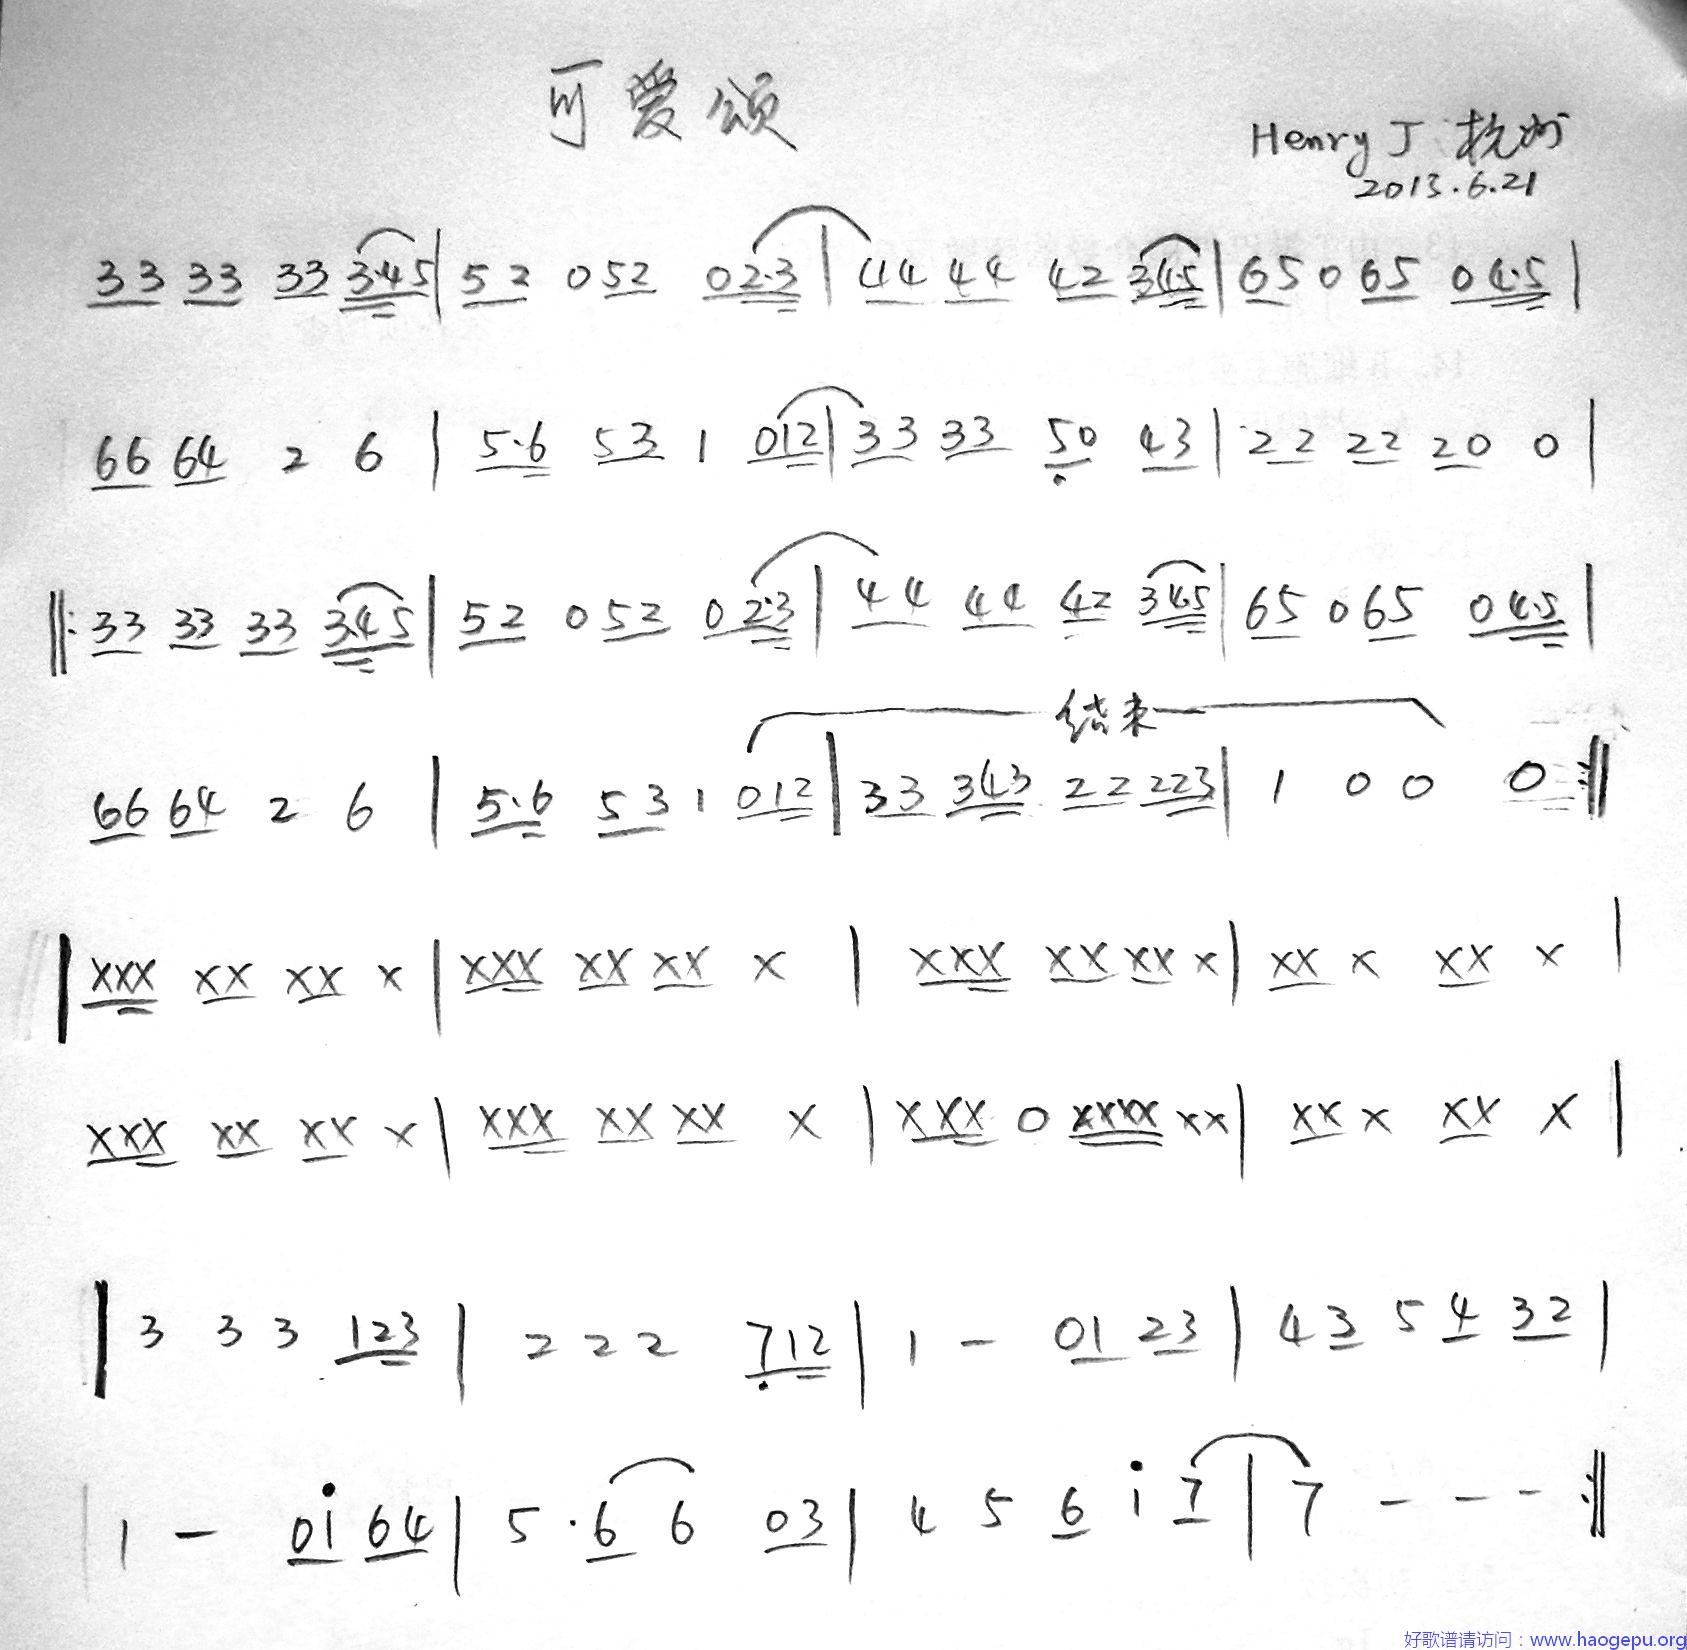 可爱颂
Henry J 杭州
2013.6.21
33 33 33 3·45 | 52 0 52 02·3 | 44 44 42 34·5 | 65 0 65 04·5 |
66 64 2 6 | 5·6 53 1 012 | 33 33 5̣0 43 | 22 22 20 0 |
‖: 33 33 33 3·45 | 52 0 52 02·3 | 44 44 42 34·5 | 65 0 65 04·5 |
结束
66 64 2 6 | 5·6 53 1 012 | 33 343 22 223 | 1 0 0 0 :‖
| XXX XX XX X | XXX XX XX X | XXX XX XX X | XX X XX X |
XXX XX XX X | XXX XX XX X | XXX 0 XXXX XX | XX X XX X |
| 3 3 3 123 | 2 2 2 7̣12 | 1 – 01 23 | 4 3 5 4 32 |
1 – 0i̇ 64 | 5 · 6 6 03 | 4 5 6 i̇ 7 | 7 – – – :‖
好歌谱请访问：www.haogepu.org